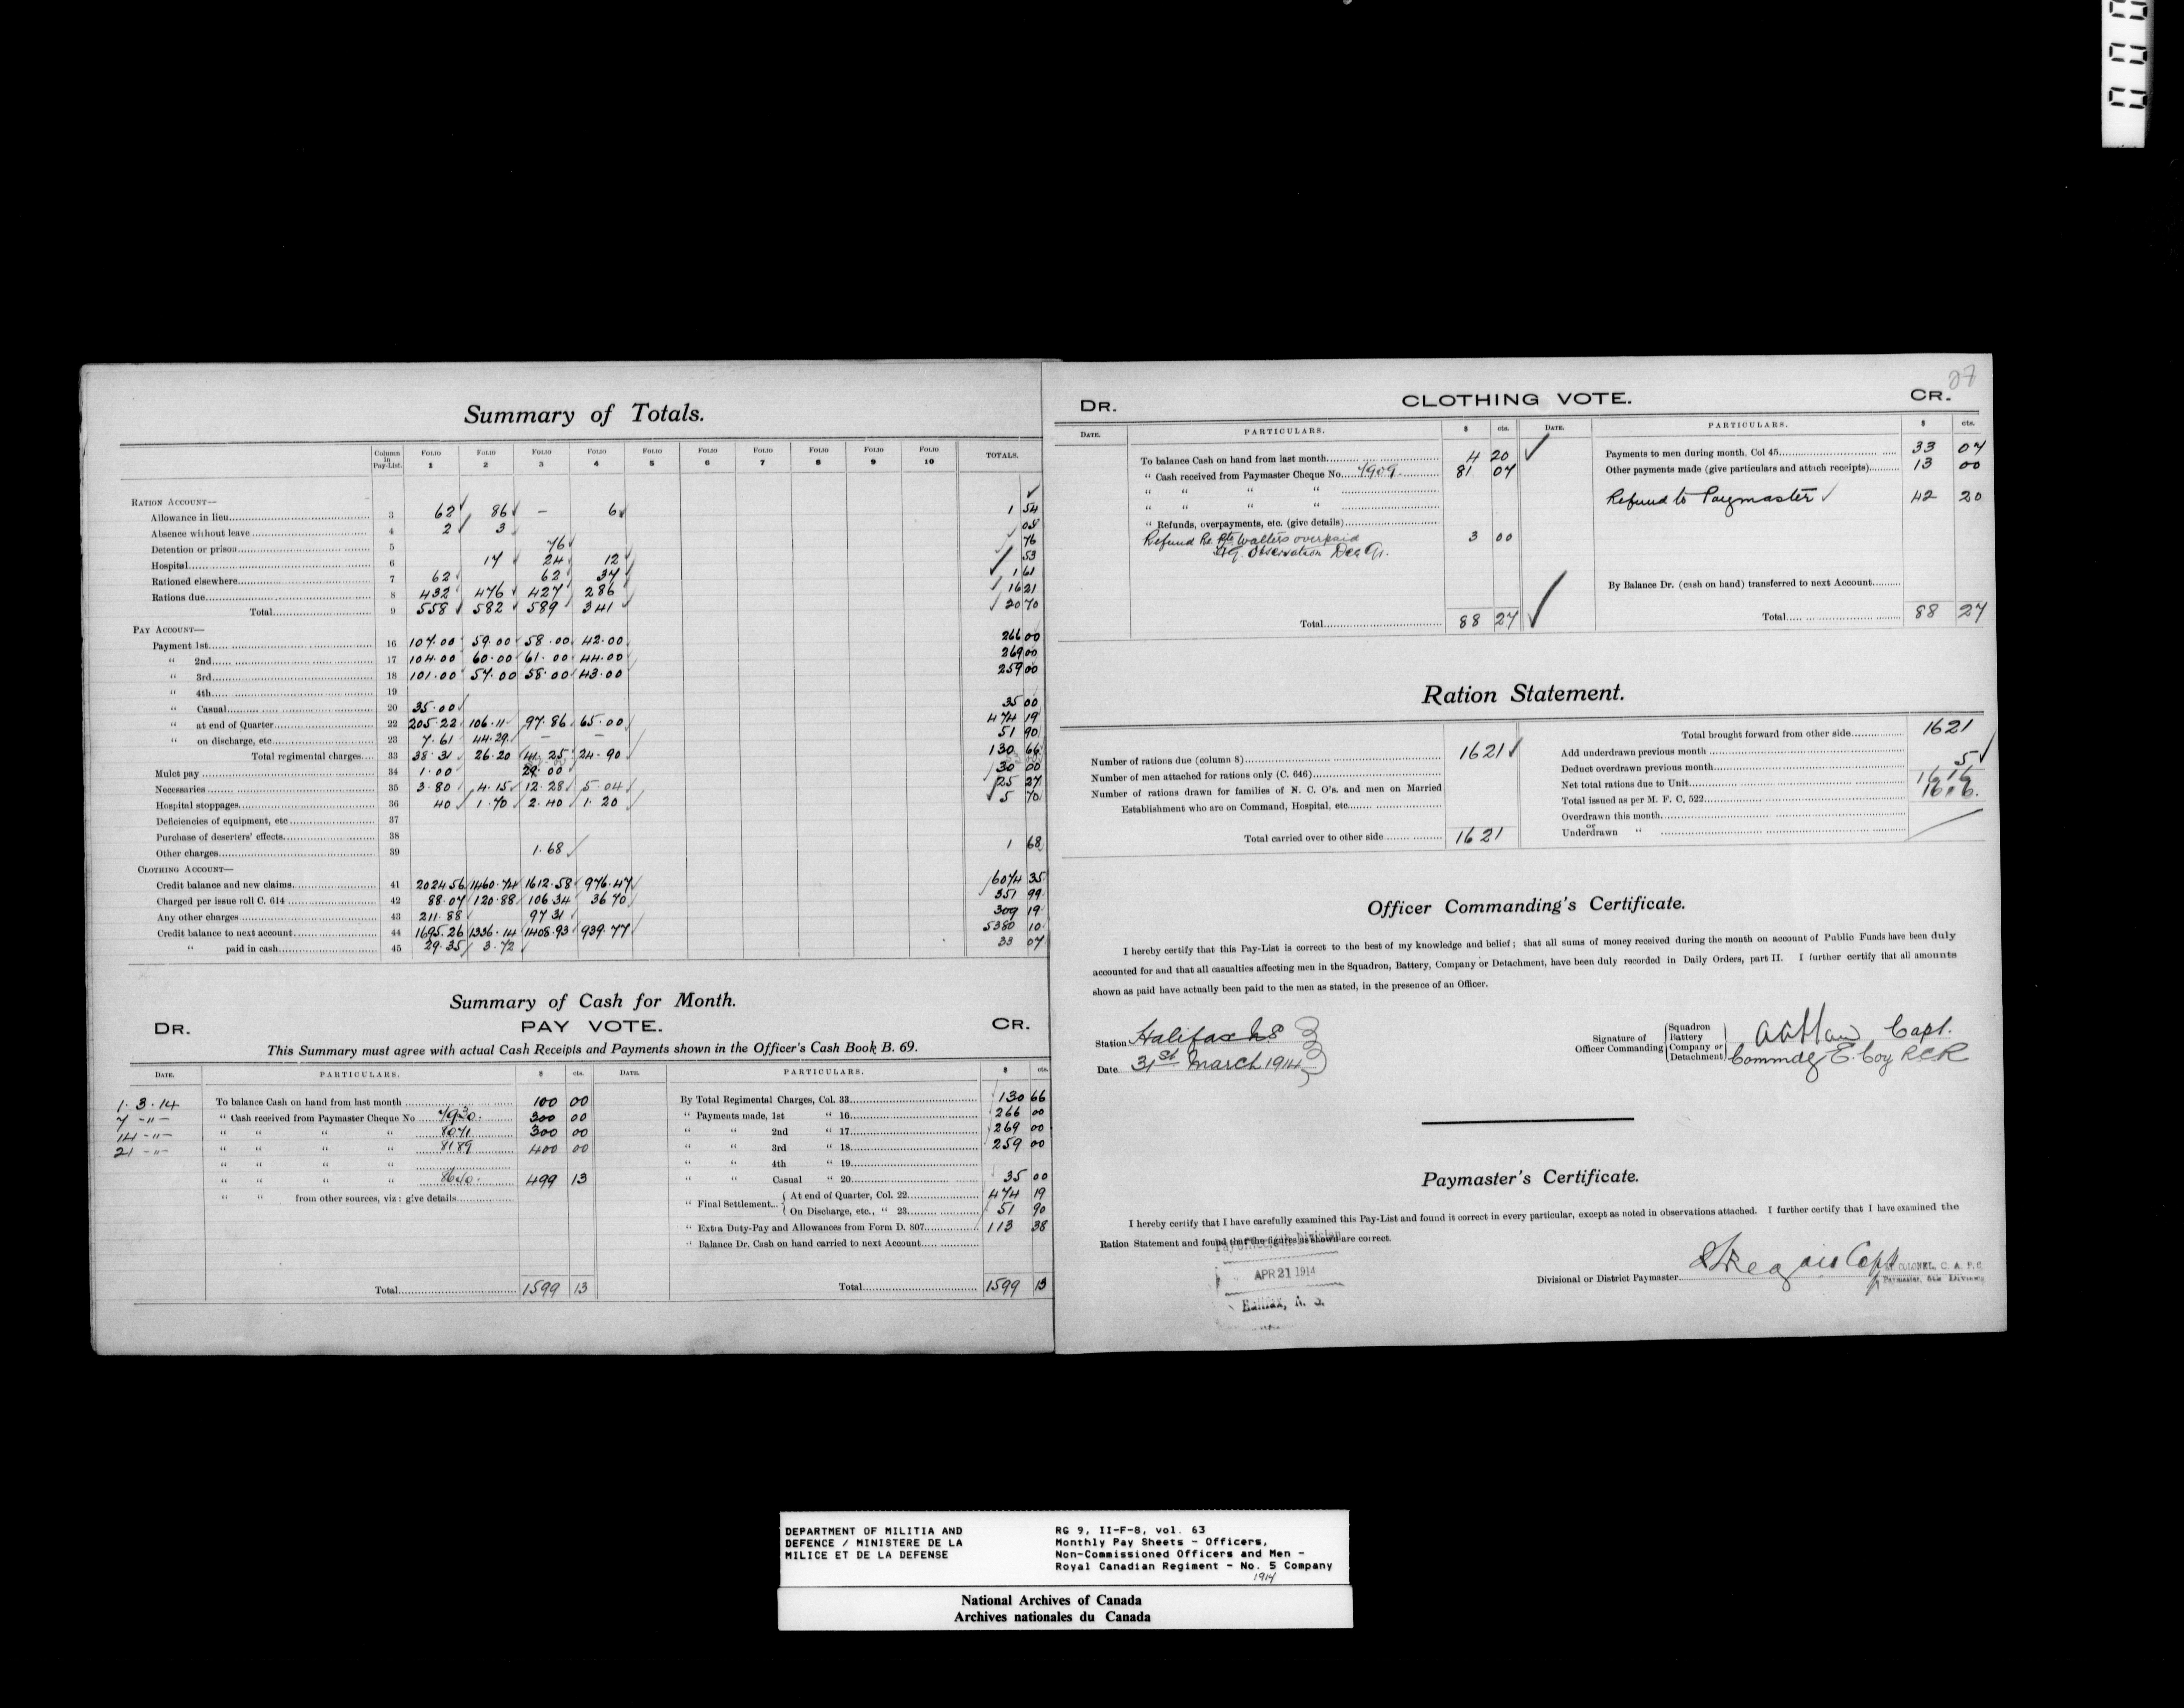 Summary of Totals.
Column in Pay-List. Folio 1 Folio 2 Folio 3 Folio 4 Folio 5 Folio 6 Folio 7 Folio 8 Folio 9 Folio 10 TOTALS.
RATION ACCOUNT—
Allowance in lieu 3 62 86 — 6 1 54
Absence without leave 4 2 3 05
Detention or prison 5 76 76
Hospital 6 17 24 12 53
Rationed elsewhere 7 62 62 37 1 61
Rations due 8 432 476 427 286 16 21
Total 9 558 582 589 341 20 70
PAY ACCOUNT—
Payment 1st 16 107.00 59.00 58.00 42.00 266 00
" 2nd 17 104.00 60.00 61.00 44.00 269 00
" 3rd 18 101.00 57.00 58.00 43.00 259 00
" 4th 19
" Casual 20 35.00 35 00
" at end of Quarter 22 205.22 106.11 97.86 65.00 474 19
" on discharge, etc 23 7.61 44.29 — — 51 90
Total regimental charges 33 38.31 26.20 41.25 24.90 130 66
Mulct pay 34 1.00 29.00 30 00
Necessaries 35 3.80 4.15 12.28 5.04 25 27
Hospital stoppages 36 40 1.70 2.40 1.20 5 70
Deficiencies of equipment, etc 37
Purchase of deserters' effects 38
Other charges 39 1.68 1 68
CLOTHING ACCOUNT—
Credit balance and new claims 41 2024 56 1460.74 1612.58 976.47 6074 35
Charged per issue roll C. 614 42 88.07 120.88 106 34 36 70 351 99
Any other charges 43 211.88 97 31 309 19
Credit balance to next account 44 1695.26 1336.14 1408.93 939.77 5380 10
" paid in cash 45 29.35 3.72 33 07
Summary of Cash for Month.
DR. PAY VOTE. CR.
This Summary must agree with actual Cash Receipts and Payments shown in the Officer's Cash Book B. 69.
DATE. PARTICULARS. $ cts. DATE. PARTICULARS. $ cts.
1.3.14 To balance Cash on hand from last month 100 00 By Total Regimental Charges, Col. 33 130 66
7 -"- " Cash received from Paymaster Cheque No 7930 300 00 " Payments made, 1st " 16 266 00
14 -"- " " " " 8071 300 00 " " 2nd " 17 269 00
21 -"- " " " " 8189 400 00 " " 3rd " 18 259 00
" " " " " " 4th " 19
" " " " 499 13 " " Casual " 20 35 00
" " from other sources, viz: give details
" Final Settlement { At end of Quarter, Col. 22 474 19
On Discharge, etc., " 23 51 90
" Extra Duty-Pay and Allowances from Form D. 807 113 38
" Balance Dr. Cash on hand carried to next Account
Total 1599 13 Total 1599 13
27
DR. CLOTHING VOTE. CR.
DATE. PARTICULARS. $ cts. DATE. PARTICULARS. $ cts.
To balance Cash on hand from last month 4 20 Payments to men during month, Col 45 33 07
" Cash received from Paymaster Cheque No. 7909 81 07 Other payments made (give particulars and attach receipts) 13 00
" " " "
Refund to Paymaster 42 20
" " " "
" Refunds, overpayments, etc. (give details)
Refund Re Pte Walters overpaid 3 00
Hq. Observation Dec Qr.
By Balance Dr. (cash on hand) transferred to next Account
Total 88 27 Total 88 27
Ration Statement.
Number of rations due (column 8) 1621
Number of men attached for rations only (C. 646)
Number of rations drawn for families of N. C. O's. and men on Married
Establishment who are on Command, Hospital, etc
Total carried over to other side 1621
Total brought forward from other side 1621
Add underdrawn previous month
Deduct overdrawn previous month 5
Net total rations due to Unit 1616
Total issued as per M. F. C. 522 1616
Overdrawn this month
or
Underdrawn "
Officer Commanding's Certificate.
I hereby certify that this Pay-List is correct to the best of my knowledge and belief; that all sums of money received during the month on account of Public Funds have been duly
accounted for and that all casualties affecting men in the Squadron, Battery, Company or Detachment, have been duly recorded in Daily Orders, part II. I further certify that all amounts
shown as paid have actually been paid to the men as stated, in the presence of an Officer.
Station Halifax NS
Date 31st March 1914
Signature of Officer Commanding { Squadron Battery Company or Detachment } Capt.
Commdg E. Coy RCR
Paymaster's Certificate.
I hereby certify that I have carefully examined this Pay-List and found it correct in every particular, except as noted in observations attached. I further certify that I have examined the
Ration Statement and found that the figures as shown are correct.
APR 21 1914
Halifax, N. S.
Divisional or District Paymaster
COLONEL, C. A. P. C.
Paymaster, 6th Division
DEPARTMENT OF MILITIA AND
DEFENCE / MINISTERE DE LA
MILICE ET DE LA DEFENSE
RG 9, II-F-8, vol. 63
Monthly Pay Sheets - Officers,
Non-Commissioned Officers and Men -
Royal Canadian Regiment - No. 5 Company
1914
National Archives of Canada
Archives nationales du Canada